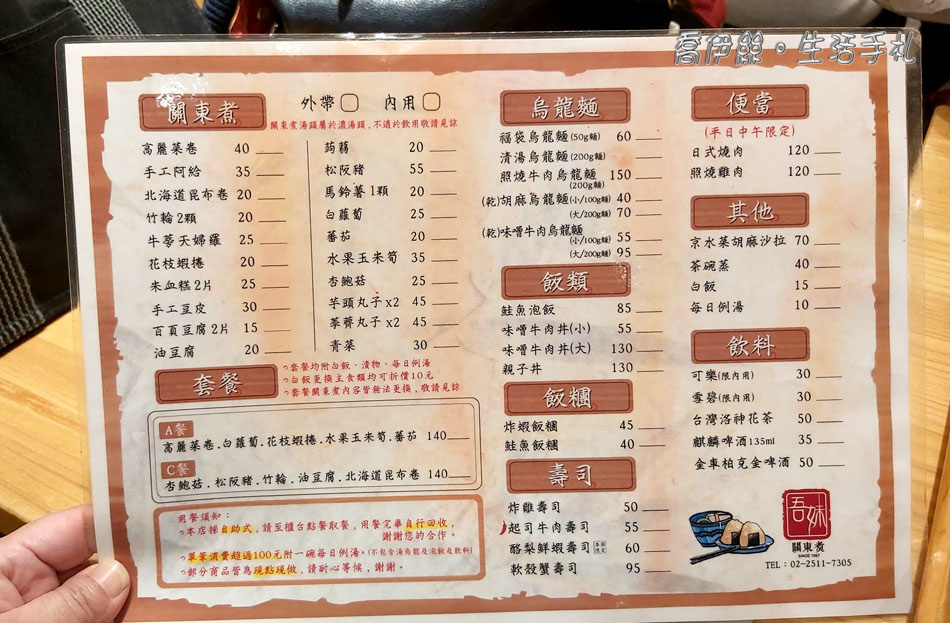 喬伊絲。生活手札
關東煮
外帶 內用
關東煮湯頭屬於濃湯頭,不適於飲用敬請見諒
高麗菜卷 40
手工阿給 35
北海道昆布卷 20
竹輪2顆 20
牛蒡天婦羅 25
花枝蝦捲 20
米血糕2片 25
手工豆皮 30
百頁豆腐2片 15
油豆腐 20
蒟蒻 20
松阪豬 55
馬鈴薯1顆 20
白蘿蔔 25
蕃茄 20
水果玉米筍 35
杏鮑菇 25
芋頭丸子x2 45
荸薺丸子x2 45
青菜 30
套餐
套餐均附白飯、漬物、每日例湯
白飯更換主食類均可折價10元
套餐關東煮內容皆無法更換,敬請見諒
A餐
高麗菜卷.白蘿蔔.花枝蝦捲.水果玉米筍.蕃茄 140
C餐
杏鮑菇.松阪豬.竹輪.油豆腐.北海道昆布卷 140
用餐須知:
本店採自助式,請至櫃台點餐取餐,用餐完畢自行回收,
謝謝您的合作。
單筆消費超過100元附一碗每日例湯。(不包含湯烏龍及泡飯及飲料)
部分商品皆為現點現做,請耐心等候,謝謝。
烏龍麵
福袋烏龍麵(50g麵) 60
清湯烏龍麵(200g麵)
照燒牛肉烏龍麵 150
(200g麵)
(乾)胡麻烏龍麵(小/100g麵) 40
(大/200g麵) 70
(乾)味噌牛肉烏龍麵
(小/100g麵) 55
(大/200g麵) 95
飯類
鮭魚泡飯 85
味噌牛肉丼(小) 55
味噌牛肉丼(大) 130
親子丼 130
飯糰
炸蝦飯糰 45
鮭魚飯糰 40
壽司
炸雞壽司 50
起司牛肉壽司 55
酪梨鮮蝦壽司 季節限定 60
軟殼蟹壽司 95
便當
(平日中午限定)
日式燒肉 120
照燒雞肉 120
其他
京水菜胡麻沙拉 70
茶碗蒸 40
白飯 15
每日例湯 10
飲料
可樂(限內用) 30
雪碧(限內用) 30
台灣洛神花茶 50
麒麟啤酒135ml 35
金車柏克金啤酒 50
吾妹
關東煮
SINCE 1967
TEL:02-2511-7305